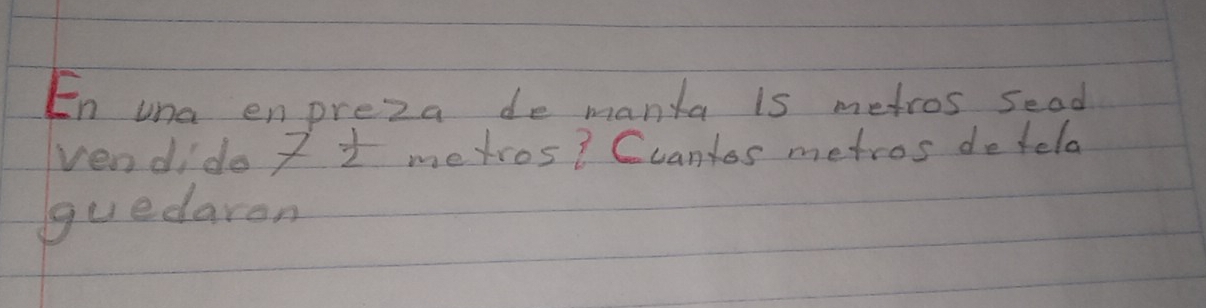 En una enpreza de manta 15 metros sead
vendido 7 ½ metros? Cuantos metros de tela
quedaron